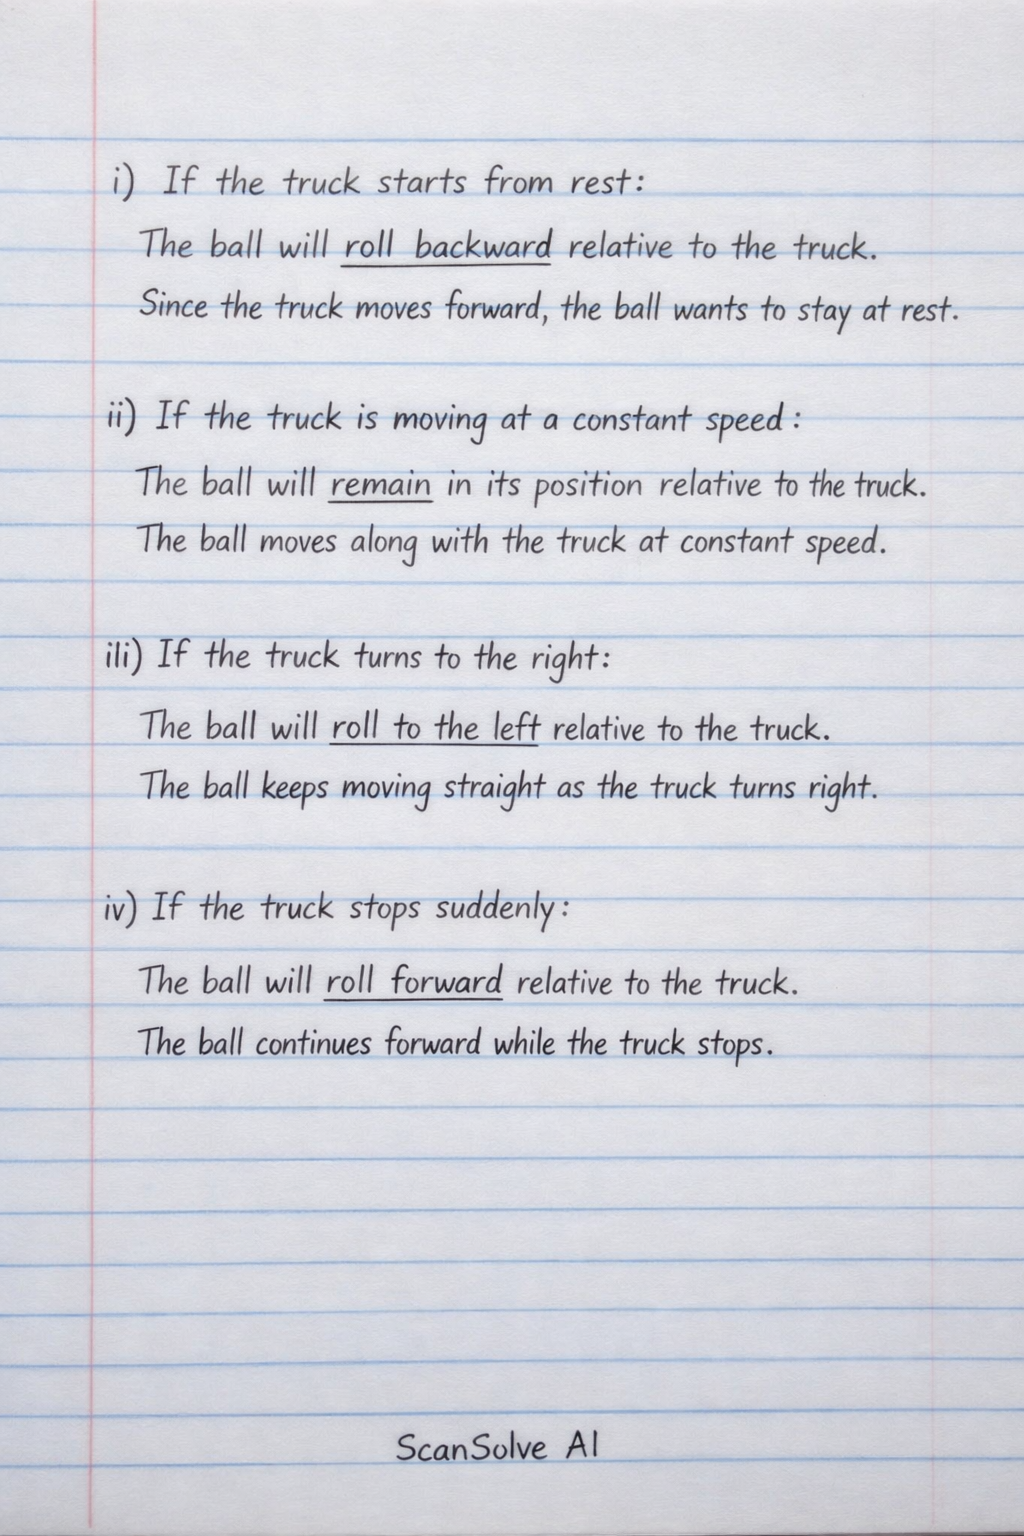 i) If the truck starts from rest:
The ball will roll backward relative to the truck.
Since the truck moves forward, the ball wants to stay at rest.
ii) If the truck is moving at a constant speed:
The ball will remain in its position relative to the truck.
The ball moves along with the truck at constant speed.
iii) If the truck turns to the right:
The ball will roll to the left relative to the truck.
The ball keeps moving straight as the truck turns right.
iv) If the truck stops suddenly:
The ball will roll forward relative to the truck.
The ball continues forward while the truck stops.
ScanSolve AI